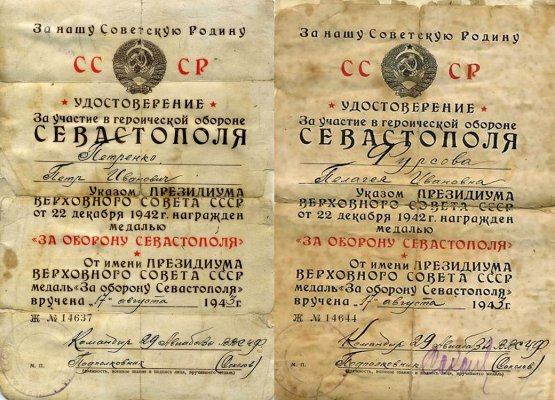 За нашу Советскую Родину
СС СР
УДОСТОВЕРЕНИЕ
За участие в героической обороне
СЕВАСТОПОЛЯ
Петренко
Петр Иванович
Указом ПРЕЗИДИУМА
ВЕРХОВНОГО СОВЕТА СССР
от 22 декабря 1942 г. награжден
медалью
«ЗА ОБОРОНУ СЕВАСТОПОЛЯ»
От имени ПРЕЗИДИУМА
ВЕРХОВНОГО СОВЕТА СССР
медаль «За оборону Севастополя»
вручена „17“ августа 1943 г.
Ж № 14637
Командир 29 Авиабазы
М. П. Подполковник (Соколов)
За нашу Советскую Родину
СС СР
УДОСТОВЕРЕНИЕ
За участие в героической обороне
СЕВАСТОПОЛЯ
Фурсова
Пелагея Ивановна
Указом ПРЕЗИДИУМА
ВЕРХОВНОГО СОВЕТА СССР
от 22 декабря 1942 г. награжден
медалью
«ЗА ОБОРОНУ СЕВАСТОПОЛЯ»
От имени ПРЕЗИДИУМА
ВЕРХОВНОГО СОВЕТА СССР
медаль «За оборону Севастополя»
вручена „17“ августа 1943 г.
Ж № 14644
Командир 29
М. П. Подполковник (Соколов)
(должность, воинское звание и подпись лица, вручившего медаль)